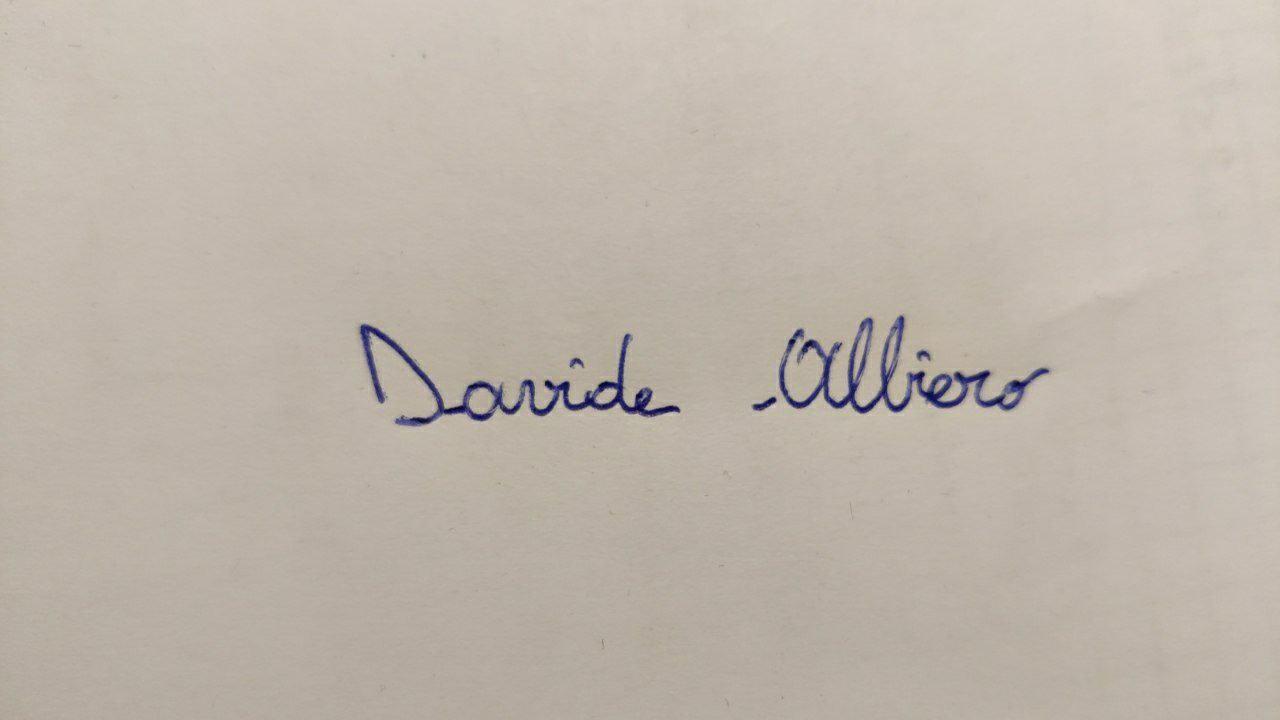 Davide Albiero